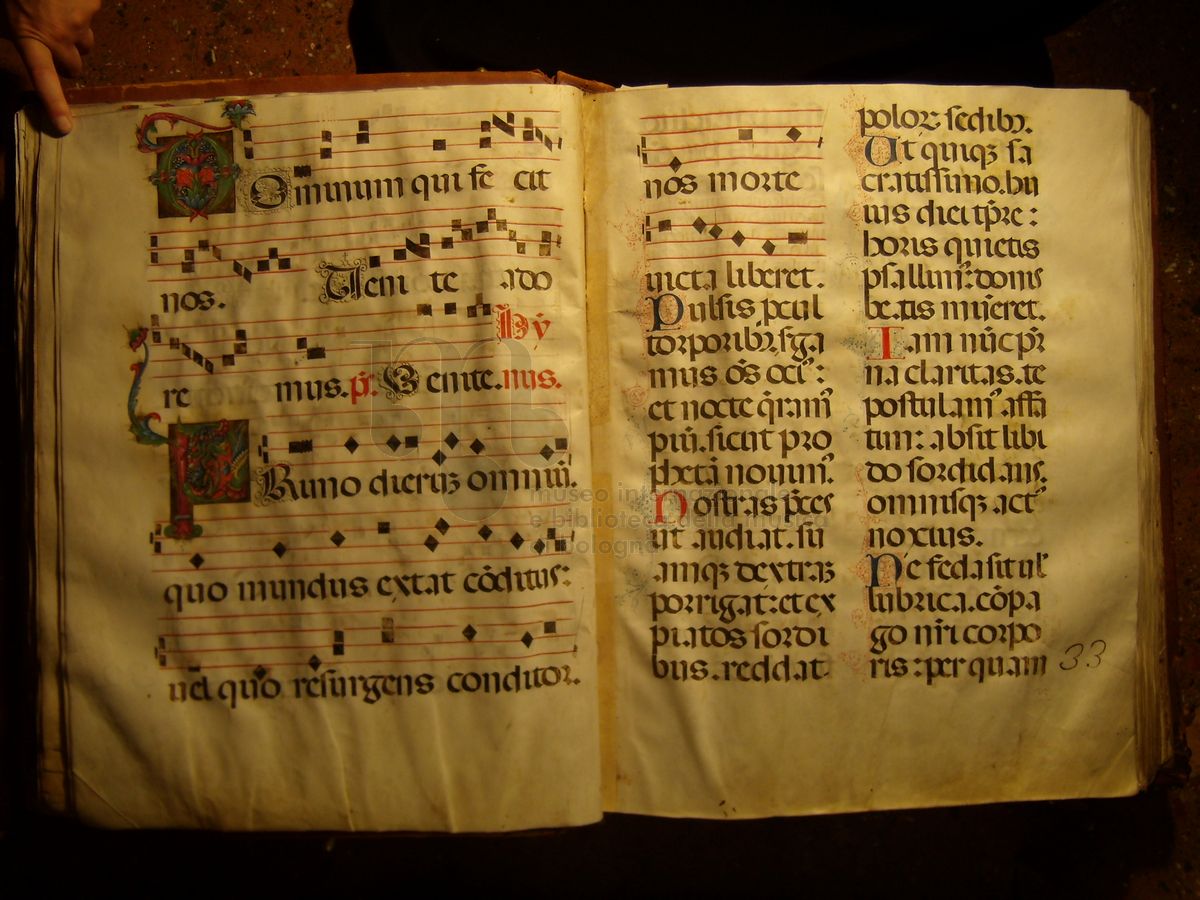 Dominum qui fecit
nos. Venite ado
hẏ
re mus. p̄s. Venite. nus.
Primo dierū omniū.
quo mundus extat cōditus:
uel quo resurgens conditor.
nos morte
uicta liberet.
Pulsis pcul
torporibꝫ surga
mus oēs oci᷑:
et nocte q̄ram᷑
piū. sicut pro
phetā nouim᷑.
Nostras pces
ut audiat. su
amqꝫ dextraꝫ
porrigat: et ex
piatos sordi
bus. reddat
poloꝝ sedibꝫ.
Ut quiqꝫ sa
cratissimo. hu
ius diei tp̄re:
horis quietis
psallim᷑: donis
beatis mūeret.
Iam nūc pr̄
na claritas. te
postulam᷑ affa
tim: absit libi
do sordidans.
omnisqꝫ act᷑
noxius.
Ne feda sit ul᷑
lubrica. cōpa
go nr̄i corpo
ris: per quam
33
museo internazionale
e biblioteca della musica
di bologna